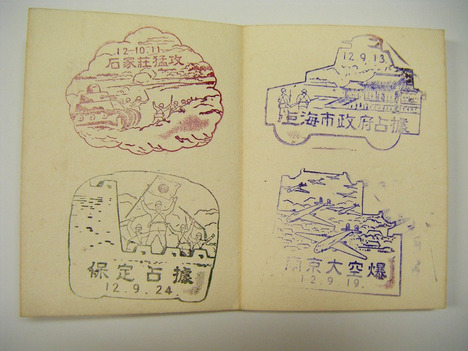 12-10.11
石家莊猛攻
保定占據
12.9.24.
12.9.13
上海市政府占據
南京大空爆
12.9.19.